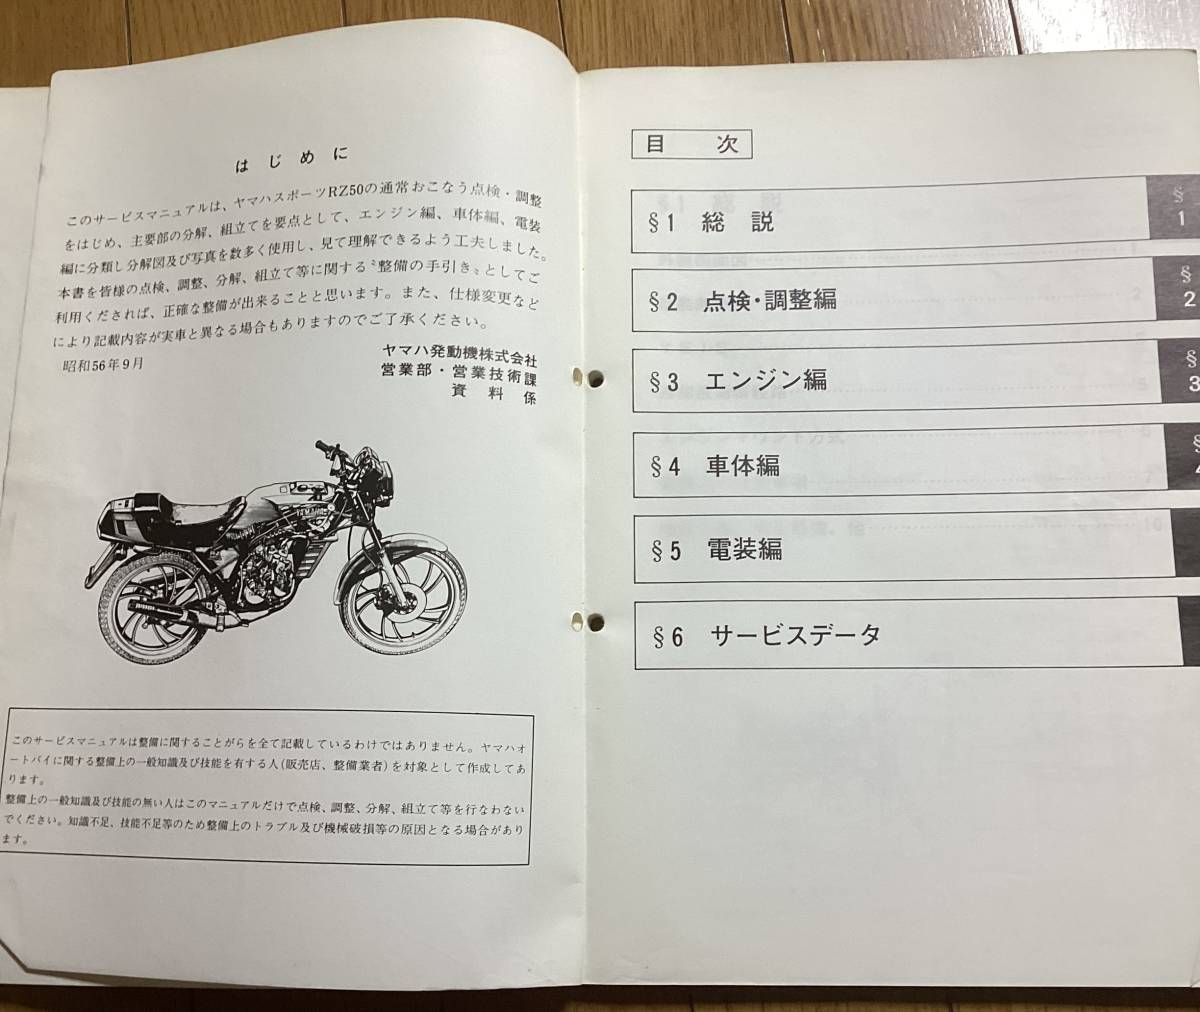 はじめに
このサービスマニュアルは、ヤマハスポーツRZ50の通常おこなう点検・調整
をはじめ、主要部の分解、組立てを要点として、エンジン編、車体編、電装
編に分類し分解図及び写真を数多く使用し、見て理解できるよう工夫しました。
本書を皆様の点検、調整、分解、組立て等に関する〝整備の手引き〟としてご
利用くだされば、正確な整備が出来ることと思います。また、仕様変更など
により記載内容が実車と異なる場合もありますのでご了承ください。
昭和56年9月
ヤマハ発動機株式会社
営業部・営業技術課
資料係
YAMAHA
このサービスマニュアルは整備に関することがらを全て記載しているわけではありません。ヤマハオ
ートバイに関する整備上の一般知識及び技能を有する人(販売店、整備業者)を対象として作成してあ
ります。
整備上の一般知識及び技能の無い人はこのマニュアルだけで点検、調整、分解、組立て等を行なわない
でください。知識不足、技能不足等のため整備上のトラブル及び機械破損等の原因となる場合があり
ます。
目 次
§1 総 説
§
1
§2 点検・調整編
§
2
§3 エンジン編
§
3
§4 車体編
§
§5 電装編
§6 サービスデータ